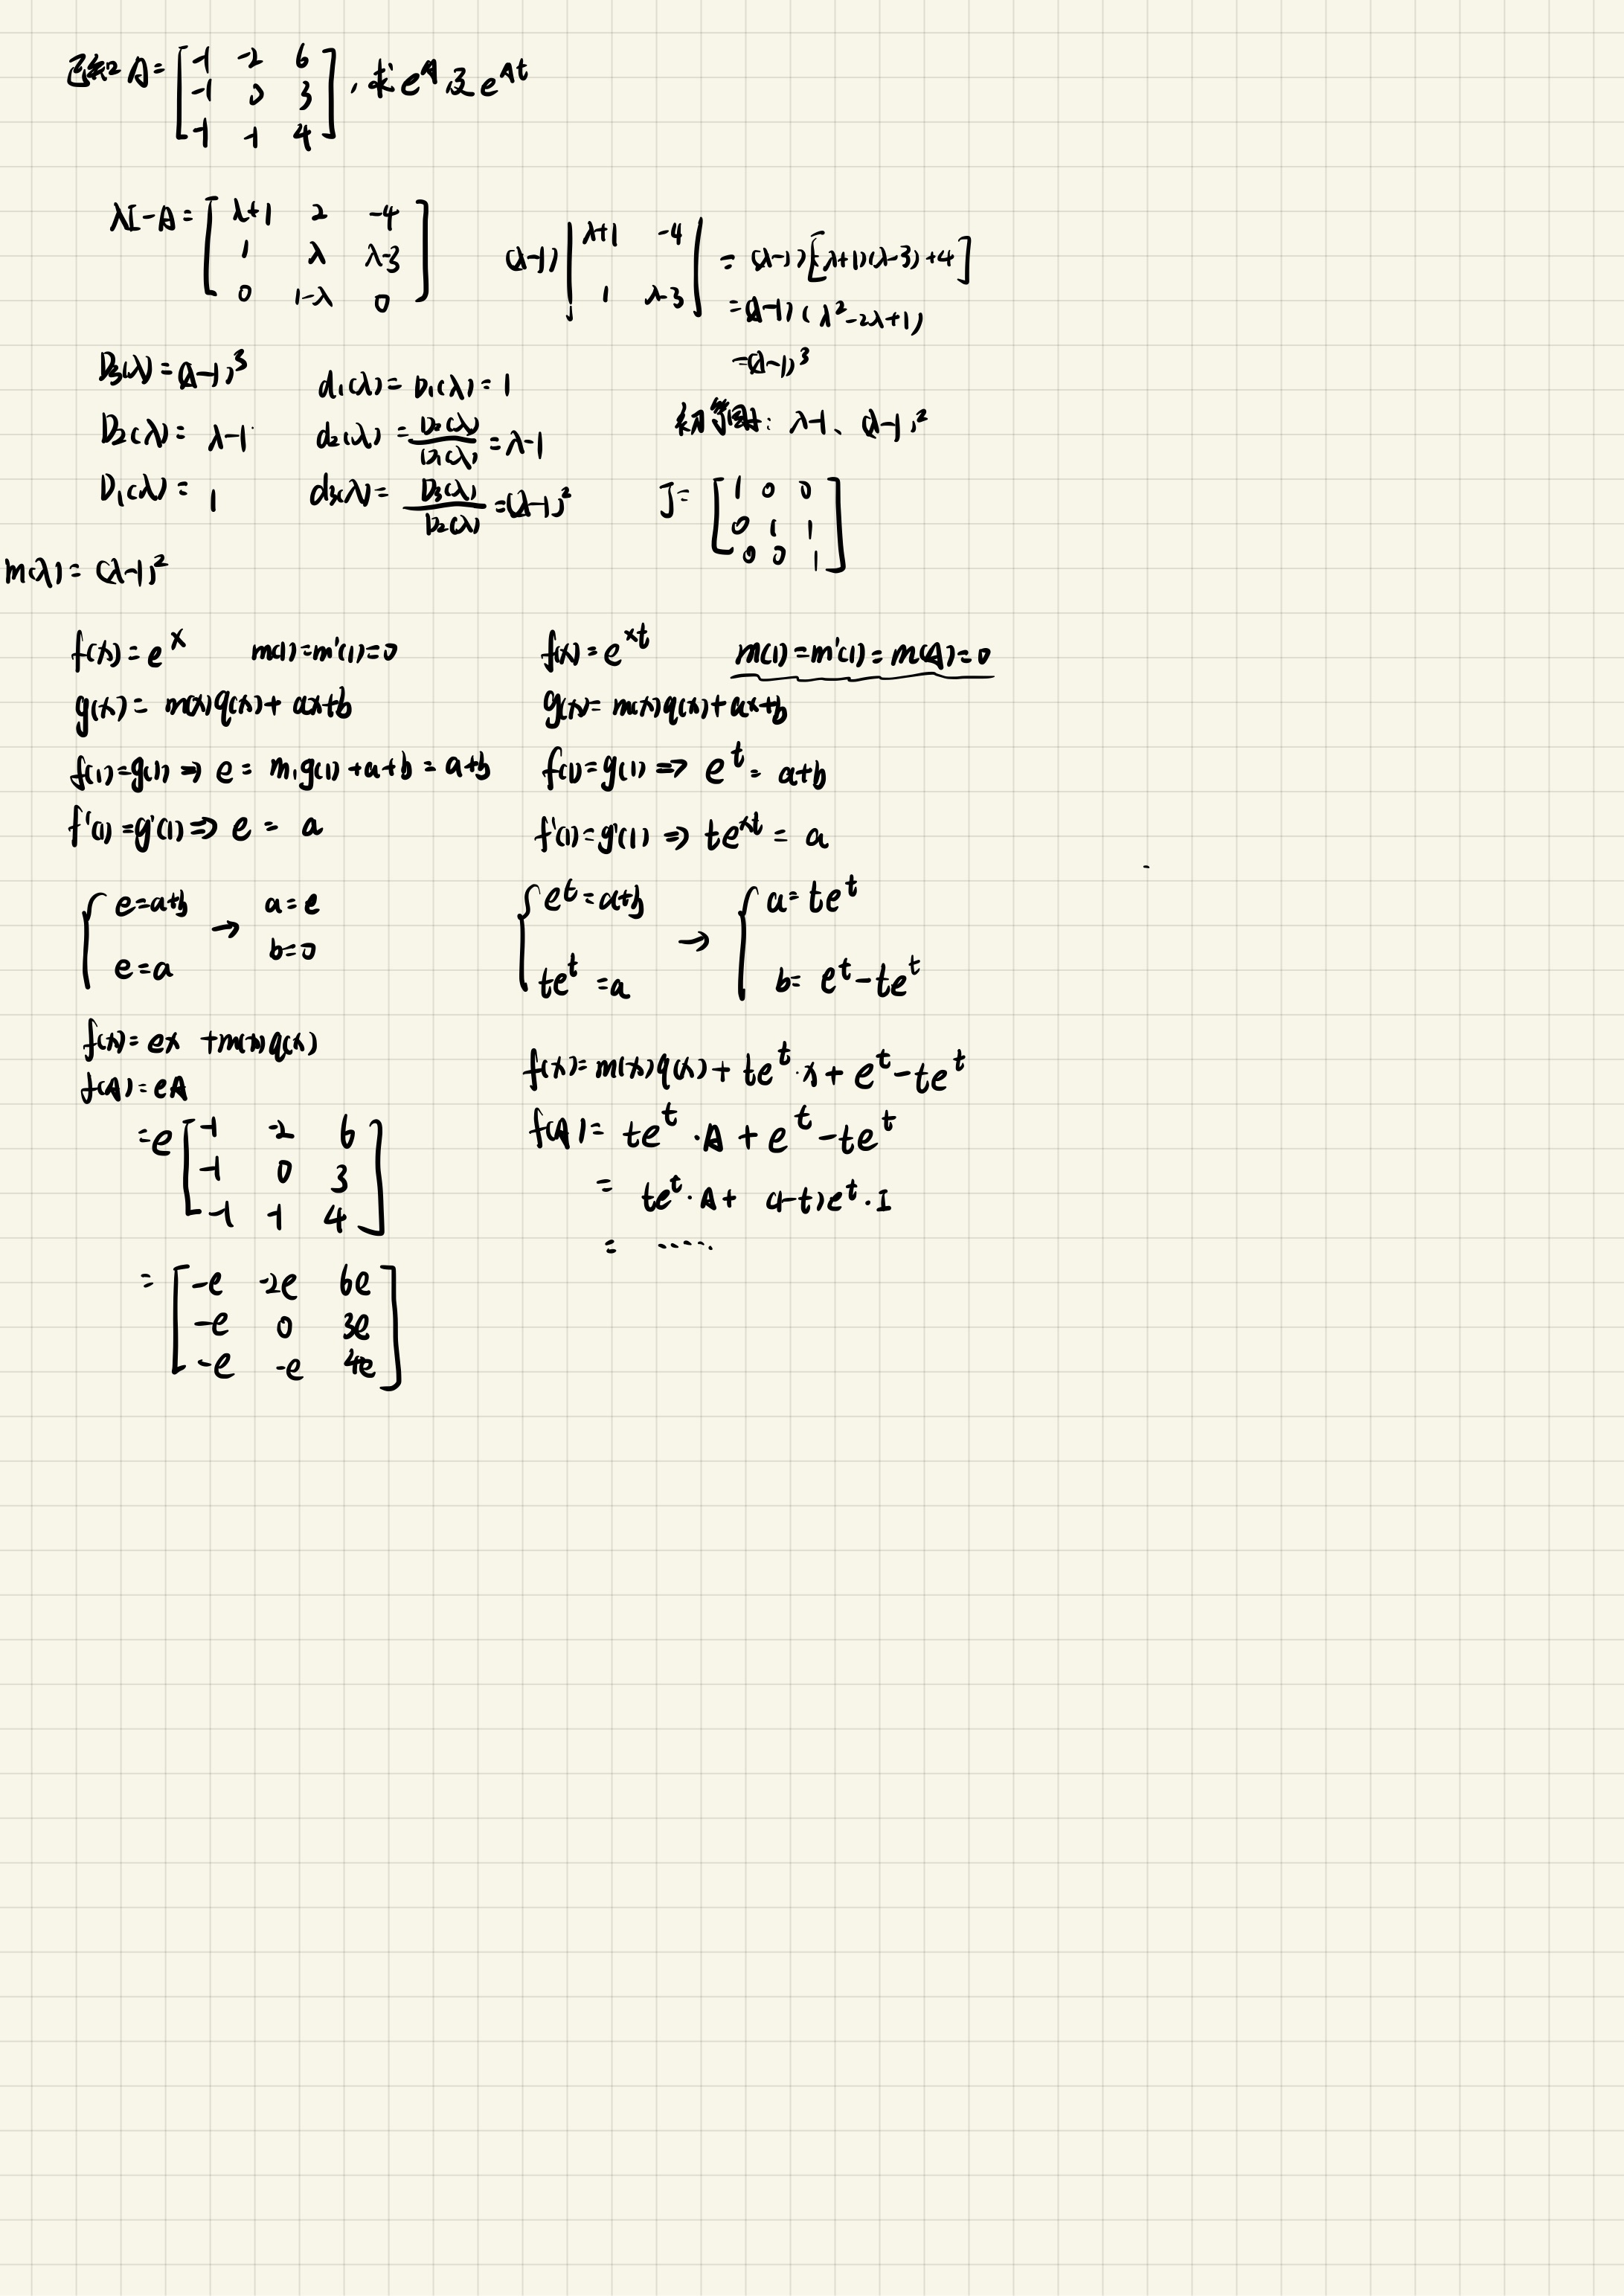 已知 A = [ -1 -2 6
-1 0 3
-1 -1 4 ] , 求 e^A 及 e^{At}
λI - A = [ λ+1 2 -4
1 λ λ-3
0 1-λ 0 ]
(λ-1) | λ+1 -4
1 λ-3 | = (λ-1)[(λ+1)(λ-3)+4]
= (λ-1)(λ²-2λ+1)
= (λ-1)³
D₃(λ) = (λ-1)³
D₂(λ) = λ-1
D₁(λ) = 1
d₁(λ) = D₁(λ) = 1
d₂(λ) = D₂(λ)/D₁(λ) = λ-1
d₃(λ) = D₃(λ)/D₂(λ) = (λ-1)²
初等因子: λ-1、(λ-1)²
J = [ 1 0 0
0 1 1
0 0 1 ]
m(λ) = (λ-1)²
f(x) = e^x m(1)=m'(1)=0
g(x) = m(x)q(x) + ax+b
f(1)=g(1) ⇒ e = m₁g(1)+a+b = a+b
f'(1)=g'(1) ⇒ e = a
{ e=a+b
e=a → a=e
b=0
f(x) = ex + m(x)q(x)
f(A) = eA
= e [ -1 -2 6
-1 0 3
-1 -1 4 ]
= [ -e -2e 6e
-e 0 3e
-e -e 4e ]
f(x) = e^{xt} m(1)=m'(1)=m(A)=0
g(x) = m(x)q(x)+ax+b
f(1)=g(1) ⇒ e^t = a+b
f'(1)=g'(1) ⇒ te^{xt} = a
{ e^t = a+b
te^t = a → { a = te^t
b = e^t - te^t
f(x) = m(x)q(x) + te^t·x + e^t - te^t
f(A) = te^t·A + e^t - te^t
= te^t·A + (1-t)e^t·I
= .....